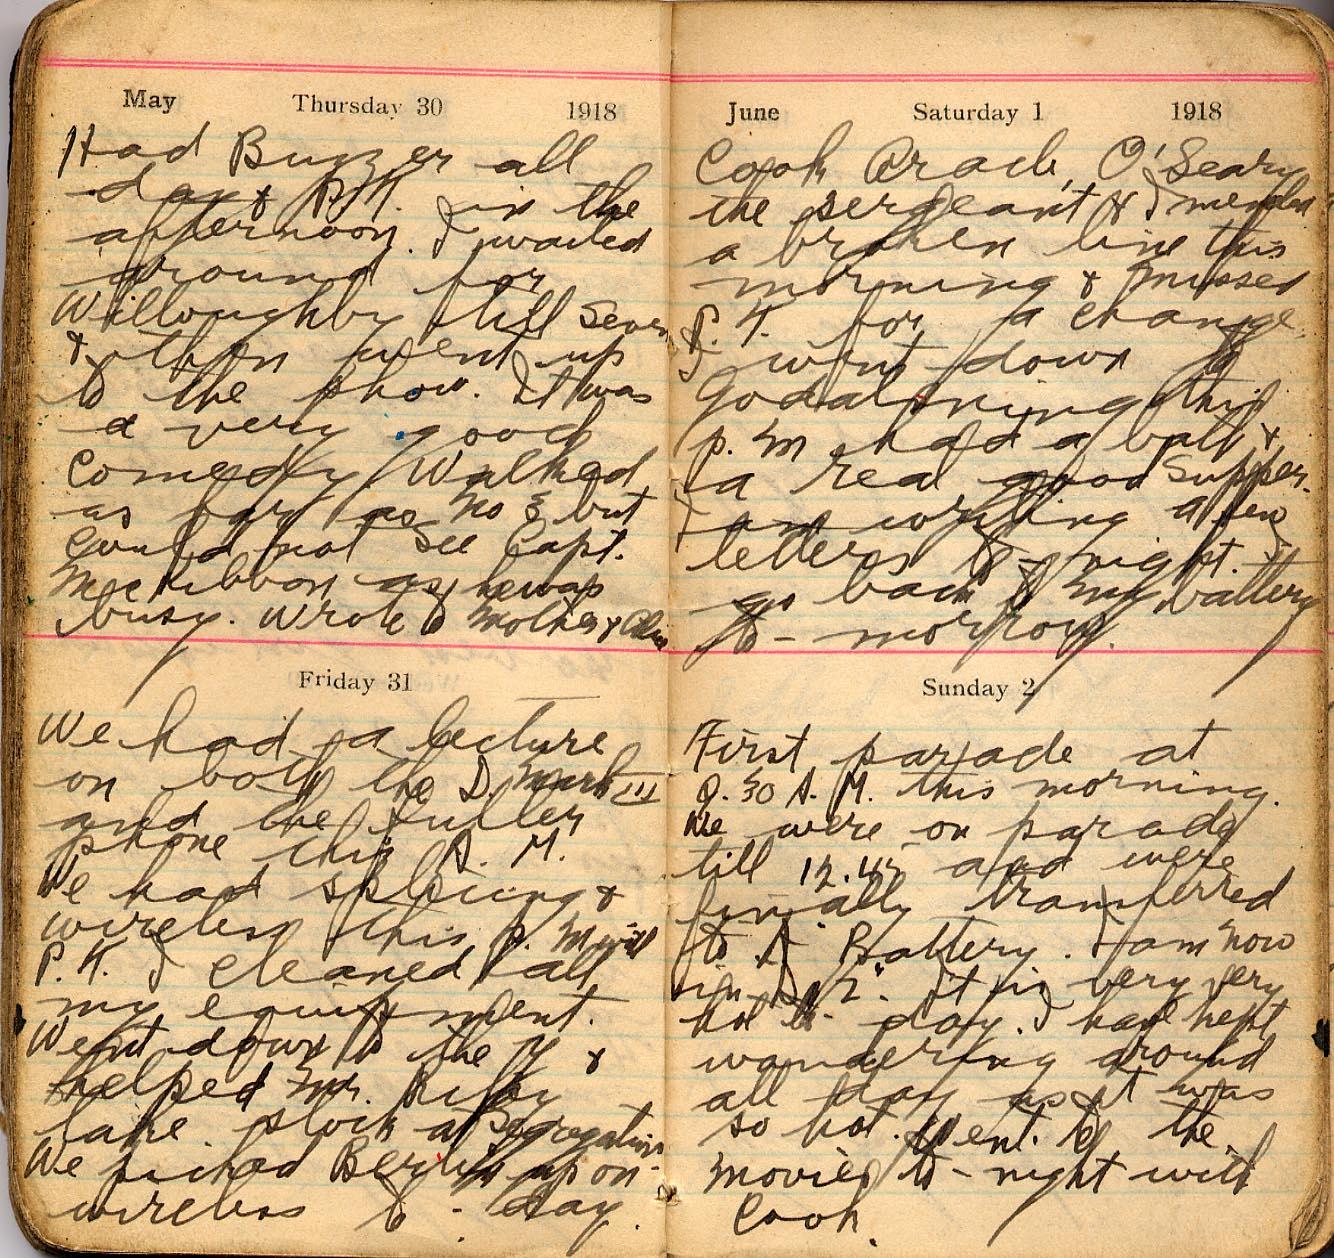 May Thursday 30 1918
Had Buzzer all
day & P.T. in the
afternoon. I waited
around for
Willoughby till seven
& then went up
to the show. It was
a very good
comedy. Walked
as far as No 3 but
could not see Capt.
McKibbon as he was
busy. Wrote to Mother &
Friday 31
We had a lecture
on both the D Mark III
and the Fuller
phone this A. M.
We had splicing &
wireless this p. M. with
P. T. I cleaned all
my equipment.
Went down to the Y &
helped Mr.
take stock at Segregation
We picked Berlin up on
wireless to-day.
June Saturday 1 1918
Cook, O'Leary
the sergeant & I mended
a broken line this
morning & missed
P. T. for a change
I went down to
Godalming this
p. M had a bath &
a real good supper.
I am writing a few
letters to-night. I
go back to my battery
to-morrow.
Sunday 2
First parade at
9.30 A. M. this morning.
We were on parade
till 12.45 and were
finially transferred
to A Battery. I am now
in It is very very
hot to-day. I have kept
wandering around
all day as it was
so hot. Went to the
movies to-night with
Cook.